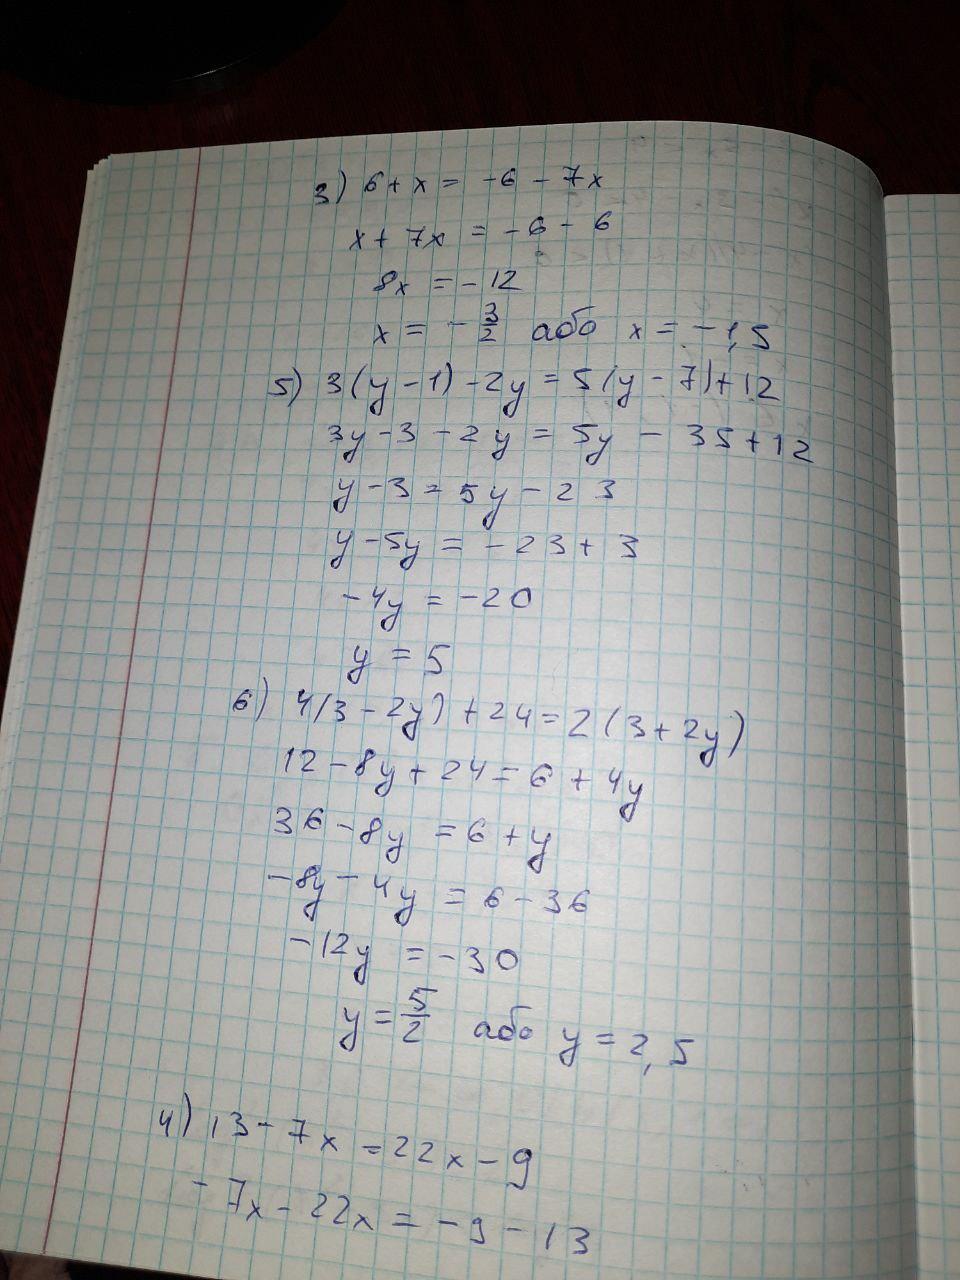 3) 6 + x = -6 - 7x
x + 7x = -6 - 6
8x = -12
x = -3/2 або x = -1,5
5) 3(y - 1) - 2y = 5(y - 7) + 12
3y - 3 - 2y = 5y - 35 + 12
y - 3 = 5y - 23
y - 5y = -23 + 3
-4y = -20
y = 5
6) 4(3 - 2y) + 24 = 2(3 + 2y)
12 - 8y + 24 = 6 + 4y
36 - 8y = 6 + y
-8y - 4y = 6 - 36
-12y = -30
y = 5/2 або y = 2,5
4) 13 - 7x = 22x - 9
-7x - 22x = -9 - 13